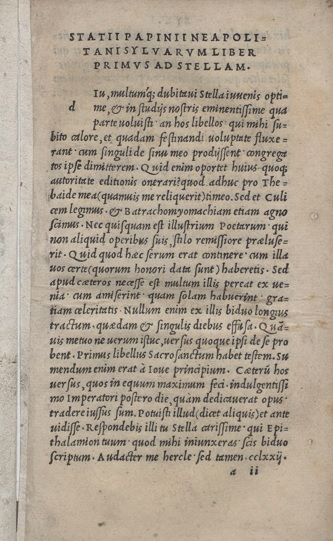 STATII PAPINII NEAPOLI=
TANI SYLVARVM LIBER
PRIMVS AD STELLAM.
Iu, multumq; dubitaui Stella iuuenis opti=
d me, & in studijs nostris eminentissime qua
parte voluisti an hos libellos qui mihi su=
bito calore, et quadam festinandi voluptate fluxe=
rant cum singuli de sinu meo prodijssent congrega
tos ipse dimitterem. Quid enim oportet huius quoq;
autoritate editionis onerari? quod adhuc pro The=
baide mea (quamuis me reliquerit) timeo. Sed et Culi
cem legimus & Batrachomyomachiam etiam agno
scimus. Nec quisquam est illustrium Poetarum qui
non aliquid operibus suis, stilo remissiore præluse=
rit. Quid quod hæc serum erat continere cum illa
vos certe (quorum honori data sunt) haberetis. Sed
apud cæteros necesse est multum illis pereat ex ve=
nia cum amiserint quam solam habuerint gra=
tiam celeritatis. Nullum enim ex illis biduo longius
tractum. quædam & singulis diebus effusa. Quā=
uis metuo ne verum istuc, versus quoque ipsi de se pro
bent. Primus libellus Sacrosanctum habet testem. Su
mendum enim erat à Ioue principium. Cæterū hos
versus, quos in equum maximum feci. indulgentissi
mo Imperatori postero die, quàm dedicauerat opus
tradere iussus sum. Potuisti illud (dicet aliquis) et ante
vidisse. Respondebis illi tu Stella carissime qui Epi=
thalamion tuum quod mihi iniunxeras scis biduo
scriptum. Audacter me hercle sed tamen cclxxij.
a ii